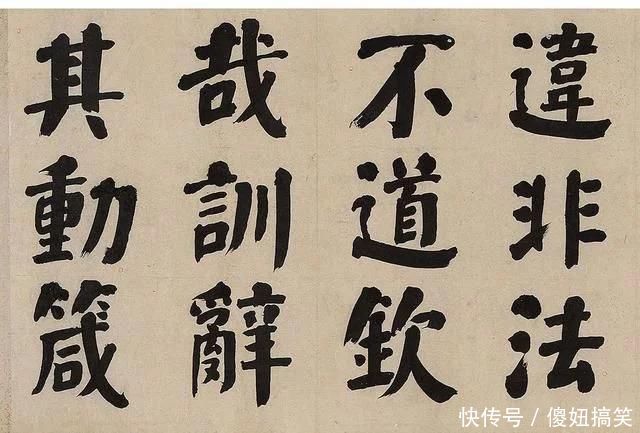 違非法
不道欽
哉訓辭
其動箴
快传号/傻妞搞笑